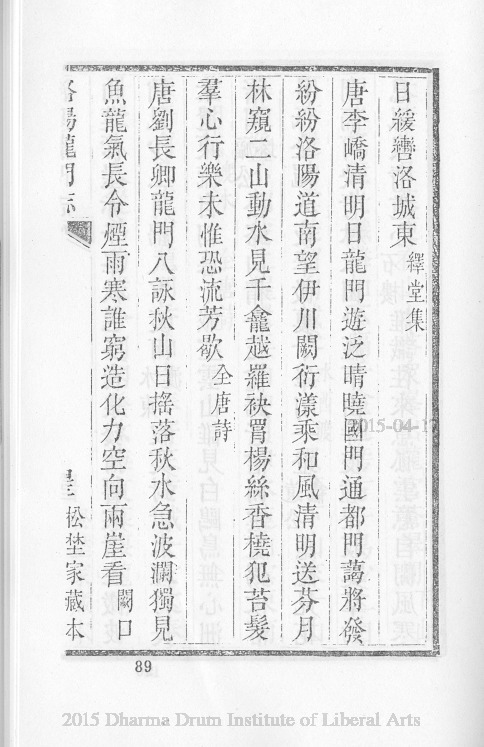 日緩轡洛城東 繹堂集
唐李嶠清明日龍門遊泛晴曉國門通都門藹將發
紛紛洛陽道南望伊川闕衍漾乘和風清明送芬月
林窺二山動水見千龕越羅袂罥楊絲香橈犯苔髮
羣心行樂未惟恐流芳歇 全唐詩
唐劉長卿龍門八詠秋山日搖落秋水急波瀾獨見
魚龍氣長令煙雨寒誰窮造化力空向兩崖看 闕口
洛陽龍門志
松埜家藏本
89
2015-04-1
2015 Dharma Drum Institute of Liberal Arts